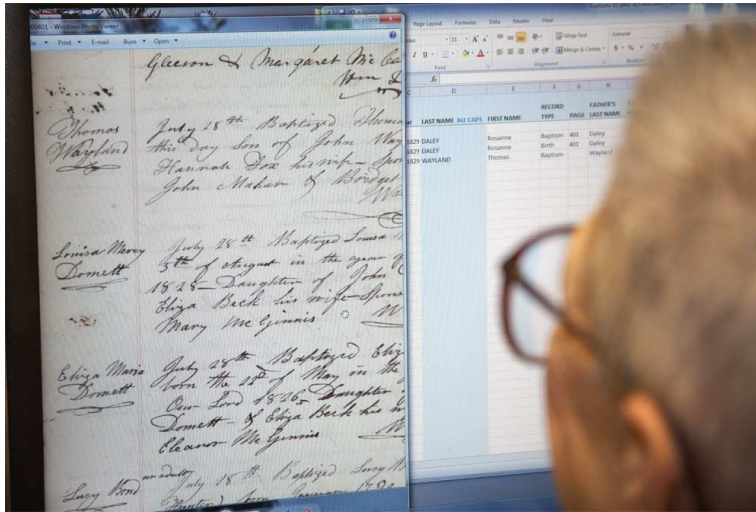 00401 - Windows Photo Viewer
Print E-mail Burn Open
Gleeson & Margaret Mc Ca
Wm
Thomas
Wayland
July 28th Baptized Thoma
this day Son of John Way
Hannah Fox his wife - Spon
John Mahar & Bridget
Louisa Mercy
Domett
July 28th Baptized Louisa
5th of August in the year of
1828 - Daughter of John
Eliza Beck his wife - Spons
Mary Mc Ginnis
Eliza Maria
Domett
July 28th Baptized Eliz
born the 28th of May in the
Our Lord 1826 - Daughter
Domett - & Eliza Beck his
Eleanor Mc Ginnis
Lucy Bond
an adult
July 18th Baptized Lucy
Page Layout Formulas Data Review View
11
Wrap Text
General
Merge & Center
Font
Alignment
fx
D E F G H
LAST NAME ALL CAPS FIRST NAME RECORD TYPE PAGE FATHER'S LAST NAME
1829 DALEY Rosanne Baptism 401 Daley
1829 DALEY Rosanne Birth 401 Daley
1829 WAYLAND Thomas Baptism Wayland